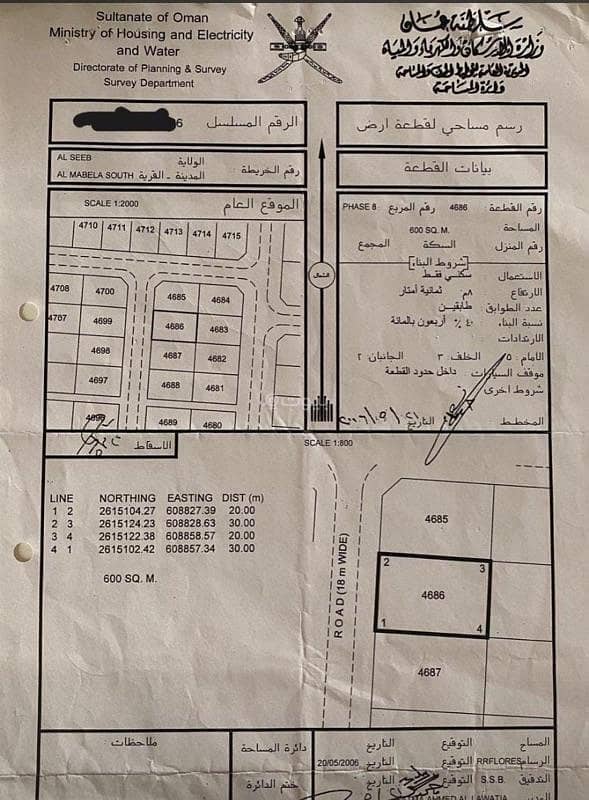 Sultanate of Oman
Ministry of Housing and Electricity
and Water
Directorate of Planning & Survey
Survey Department
سلطنة عمان
وزارة الإسكان والكهرباء والمياه
المديرية العامة للتخطيط والمساحة
دائرة المساحة
الرقم المسلسل
6
رسم مساحي لقطعة ارض
AL SEEB
الولاية
AL MABELA SOUTH
المدينة - القرية
رقم الخريطة :
بيانات القطعة
SCALE 1:2000
الموقع العام
4710 4711 4712 4713 4714 4715
4708 4700 4685 4684
4707 4699 4686 4683
4698 4687 4682
4697 4688 4681
4696 4689 4680
الشمال
رقم القطعة : 4686 رقم المربع PHASE 8
المساحة 600 SQ. M.
رقم منزل السكة المجمع
[شروط البناء]
الاستعمال سكني فقط
الارتفاع ٨م ثمانية أمتار
عدد الطوابق طابقين
نسبة البناء ٤٠٪ أربعون بالمائة
الارتدادات
الامام ٥ الخلف ٣ الجانبان ٢
موقف السيارات داخل حدود القطعة
شروط اخرى
المخطط التاريخ
الاسقاط
SCALE 1:800
LINE NORTHING EASTING DIST (m)
1 2 2615104.27 608827.39 20.00
2 3 2615124.23 608828.63 30.00
3 4 2615122.38 608858.57 20.00
4 1 2615102.42 608857.34 30.00
600 SQ. M.
ROAD (18 m WIDE)
4685
2 3
4686
1 4
4687
ملاحظات
دائرة المساحة
ختم الدائرة
المساح التوقيع التاريخ
الرسام RRFLORES التوقيع التاريخ 20/05/2006
التدقيق S.S.B. التوقيع التاريخ
AHMED AL LAWATIA